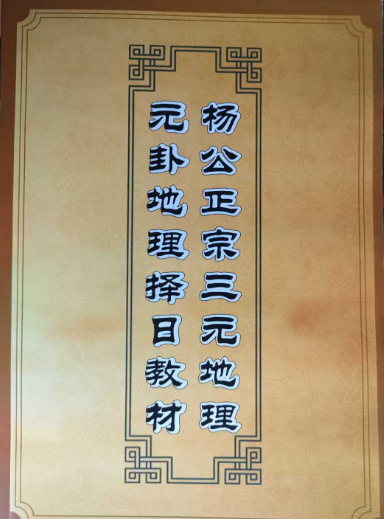 杨公正宗三元地理
元卦地理择日教材